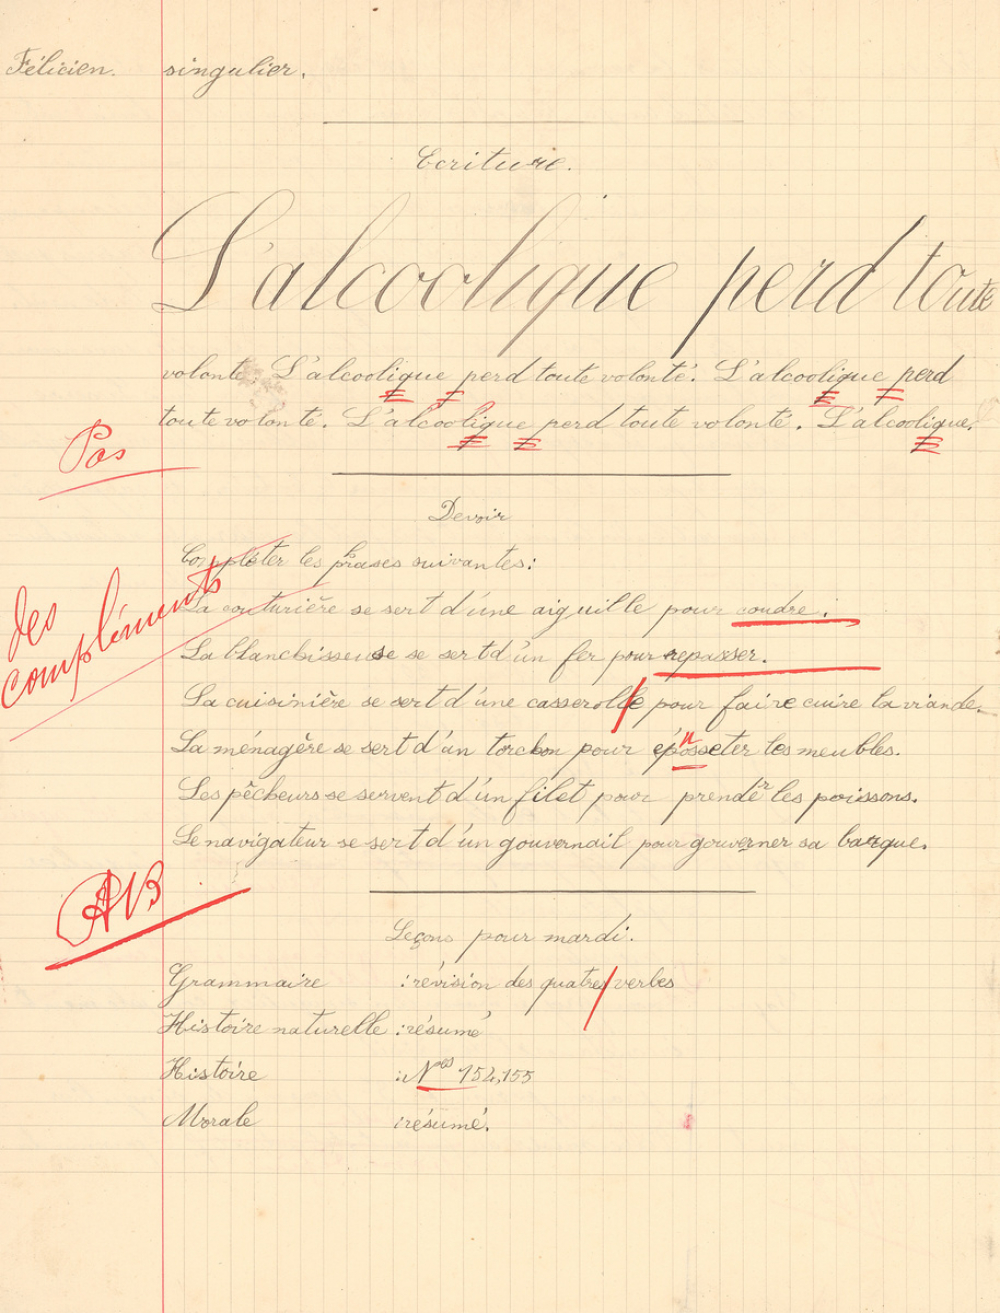 Félicien. singulier.
Ecriture.
L'alcoolique perd toute
volonté. L'alcoolique perd toute volonté. L'alcoolique perd
toute volonté. L'alcoolique perd toute volonté. L'alcoolique.
Pas
Devoir
Compléter les phrases suivantes:
des
compléments
La couturière se sert d'une aiguille pour coudre.
La blanchisseuse se sert d'un fer pour repasser.
La cuisinière se sert d'une casserolle pour faire cuire la viande.
La ménagère se sert d'un torchon pour épousseter les meubles.
Les pêcheurs se servent d'un filet pour prendre les poissons.
Le navigateur se sert d'un gouvernail pour gouverner sa barque.
AB
Leçons pour mardi.
Grammaire : révision des quatres verbes
Histoire naturelle : résumé
Histoire : Nos 154,155
Morale : résumé.